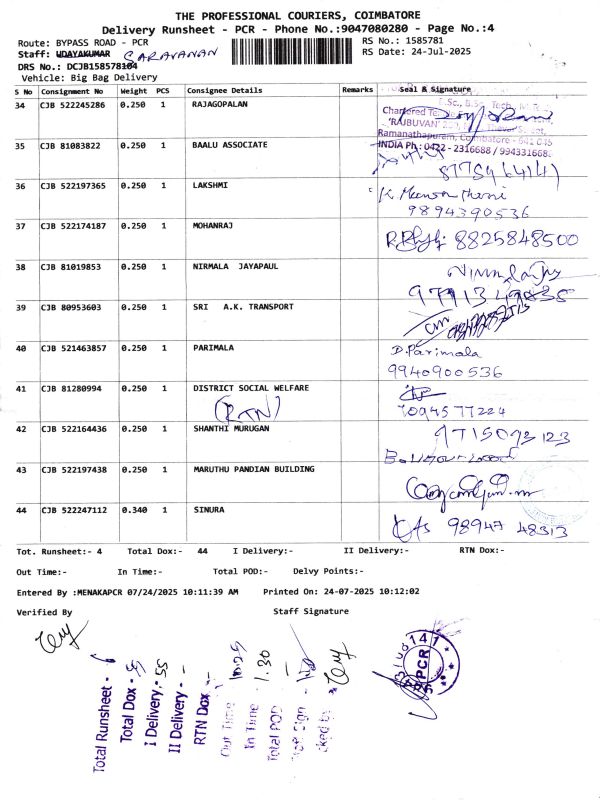 THE PROFESSIONAL COURIERS, COIMBATORE
Delivery Runsheet - PCR - Phone No.:9047080280 - Page No.:4
Route: BYPASS ROAD - PCR
RS No.: 1585781
Staff: UDAYAKUMAR SARAVANAN
RS Date: 24-Jul-2025
DRS No.: DCJB158578104
Vehicle: Big Bag Delivery
S No Consignment No Weight PCS Consignee Details Remarks Seal & Signature
34 CJB 522245286 0.250 1 RAJAGOPALAN
Chartered
'RAJBUVAN'
Ramanathapuram, Coimbatore - 641 045
INDIA Ph : 0422 - 2316688 /
35 CJB 81083822 0.250 1 BAALU ASSOCIATE
36 CJB 522197365 0.250 1 LAKSHMI
9894390536
37 CJB 522174187 0.250 1 MOHANRAJ
8825848500
38 CJB 81019853 0.250 1 NIRMALA JAYAPAUL
39 CJB 80953603 0.250 1 SRI A.K. TRANSPORT
40 CJB 521463857 0.250 1 PARIMALA D.Parimala
9940900536
41 CJB 81280994 0.250 1 DISTRICT SOCIAL WELFARE
(RTN)
42 CJB 522164436 0.250 1 SHANTHI MURUGAN
43 CJB 522197438 0.250 1 MARUTHU PANDIAN BUILDING
44 CJB 522247112 0.340 1 SINURA
98947 48313
Tot. Runsheet:- 4 Total Dox:- 44 I Delivery:- II Delivery:- RTN Dox:-
Out Time:- In Time:- Total POD:- Delvy Points:-
Entered By :MENAKAPCR 07/24/2025 10:11:39 AM Printed On: 24-07-2025 10:12:02
Verified By Staff Signature
Total Runsheet -
Total Dox - 55
I Delivery - 55
II Delivery - -
RTN Dox -
Out Time - 10:25
In Time - 1.30
Total POD -
PCR
141